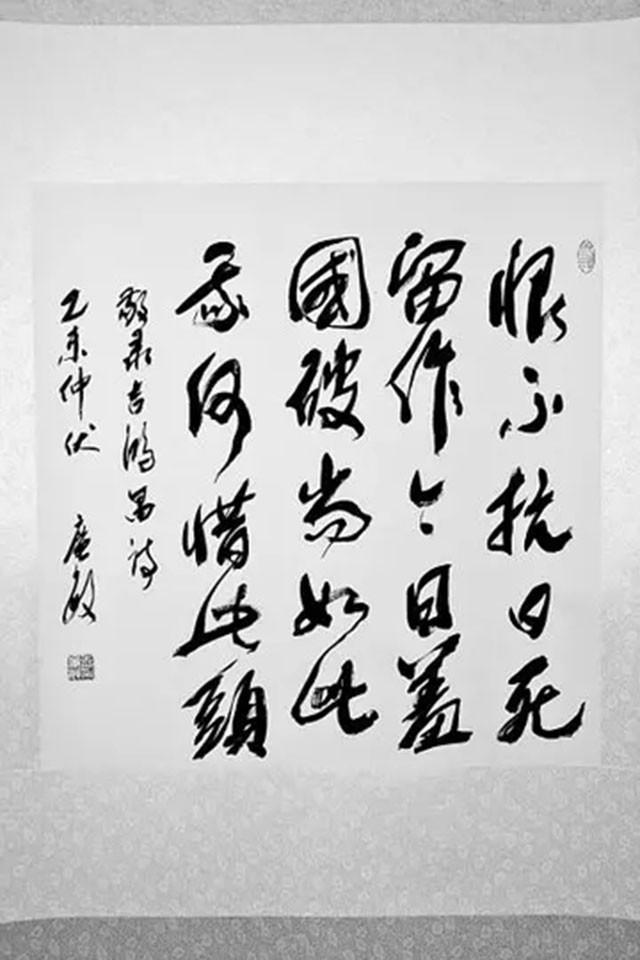 恨不抗日死
留作今日羞
國破尚如此
我何惜此頭
敬录吉鴻昌诗
乙未仲伏 產敏